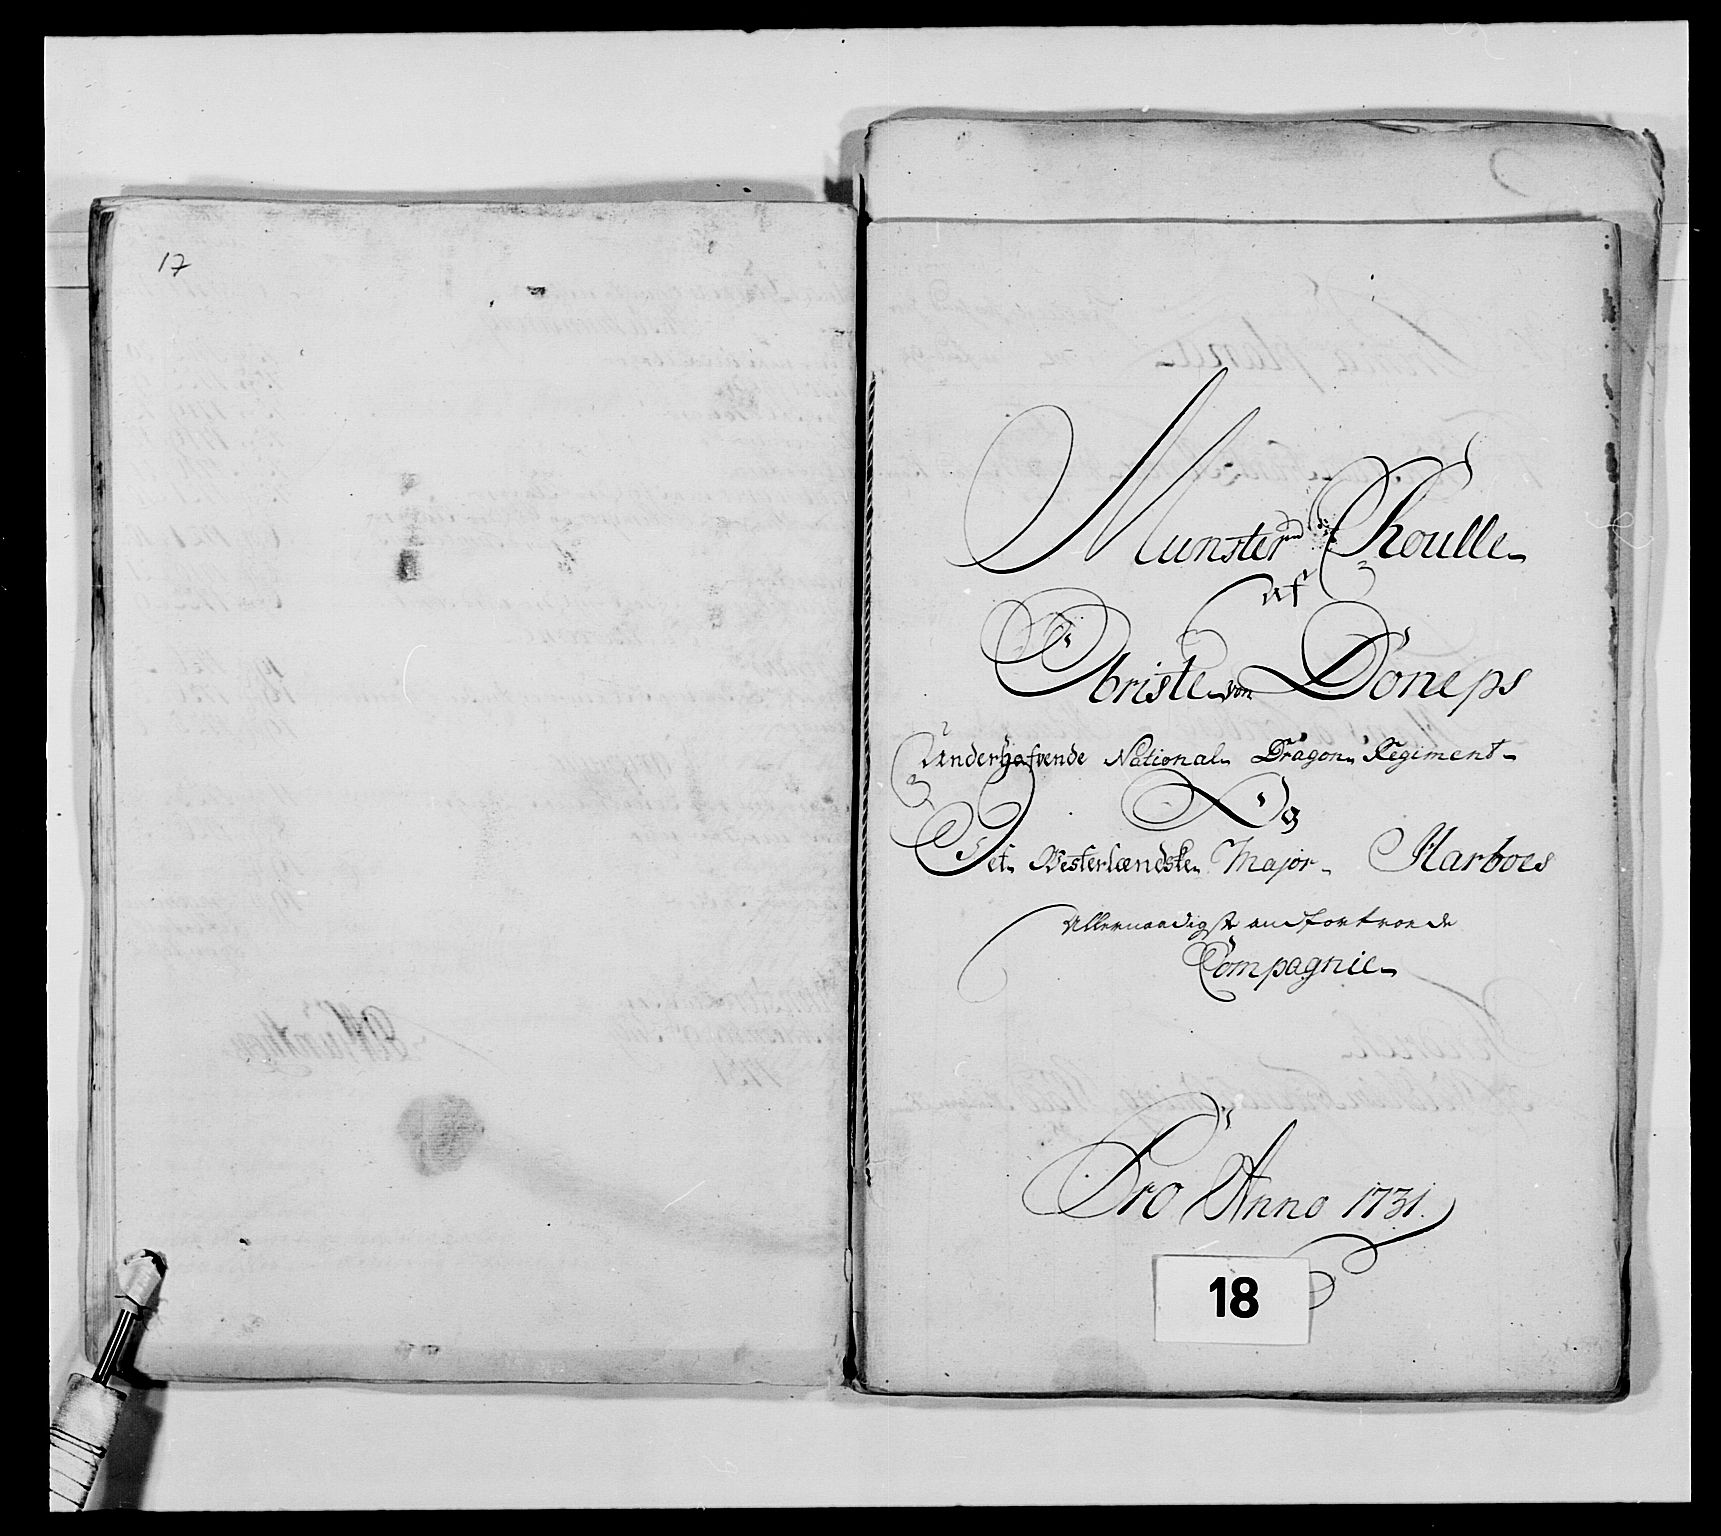 17
Munster Roulle
af
Obriste von Döneps
Underhafvende National Dragon Regiment
Og
Det Vesterlændske Major Harboes
Allernaadigst anfortroede
Compagnie
Pro Anno 1731.
18